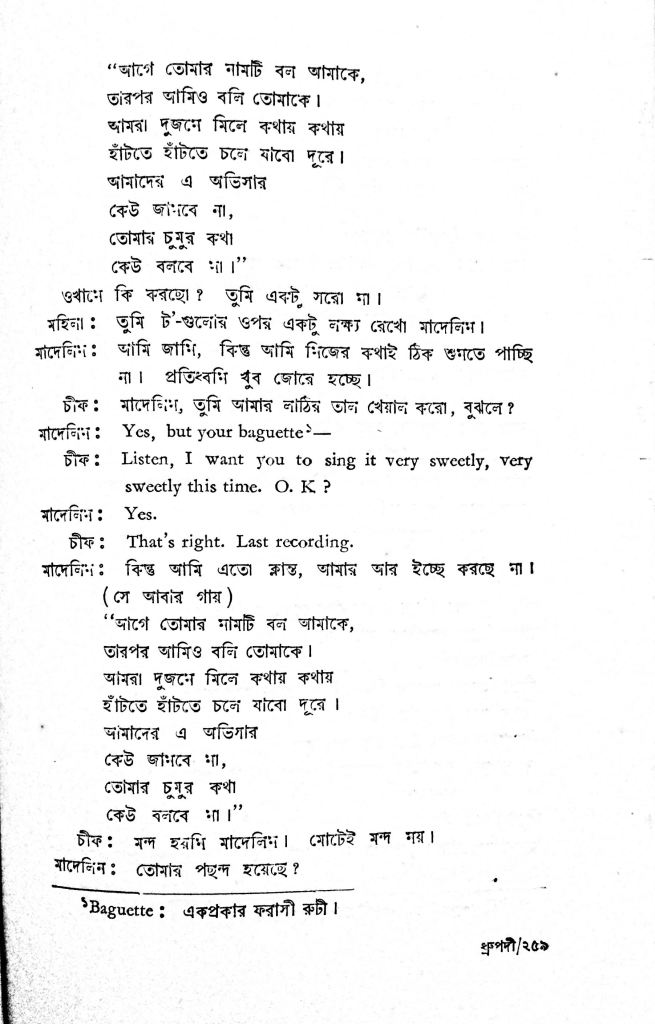 “আগে তোমার নামটি বল আমাকে,
তারপর আমিও বলি তোমাকে।
আমরা দুজনে মিলে কথায় কথায়
হাঁটতে হাঁটতে চলে যাবো দূরে।
আমাদের এ অভিসার
কেউ জানবে না,
তোমার চুমুর কথা
কেউ বলবে না।”
ওখানে কি করছো? তুমি একটু সরো না।
মহিলা: তুমি ট'-গুলোর ওপর একটু লক্ষ্য রেখো মাদেলিন।
মাদেলিন: আমি জানি, কিন্তু আমি নিজের কথাই ঠিক শুনতে পাচ্ছি
না। প্রতিধ্বনি খুব জোরে হচ্ছে।
চীফ: মাদেলিন, তুমি আমার লাঠির তাল খেয়াল করো, বুঝলে?
মাদেলিন: Yes, but your baguette১—
চীফ: Listen, I want you to sing it very sweetly, very
sweetly this time. O. K ?
মাদেলিন: Yes.
চীফ: That's right. Last recording.
মাদেলিন: কিন্তু আমি এতো ক্লান্ত, আমার আর ইচ্ছে করছে না।
(সে আবার গায়)
“আগে তোমার নামটি বল আমাকে,
তারপর আমিও বলি তোমাকে।
আমরা দুজনে মিলে কথায় কথায়
হাঁটতে হাঁটতে চলে যাবো দূরে।
আমাদের এ অভিসার
কেউ জানবে না,
তোমার চুমুর কথা
কেউ বলবে না।”
চীফ: মন্দ হয়নি মাদেলিন। মোটেই মন্দ নয়।
মাদেলিন: তোমার পছন্দ হয়েছে?
১Baguette: একপ্রকার ফরাসী রুটী।
ধ্রুপদী/২৫৯